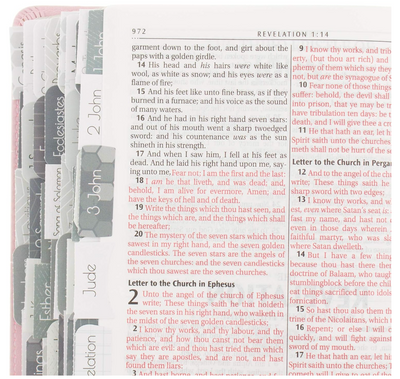 972
REVELATION 1:14
garment down to the foot, and girt about the
paps with a golden girdle.
14 His head and his hairs were white like
wool, as white as snow; and his eyes were as a
flame of fire;
15 And his feet like unto fine brass, as if they
burned in a furnace; and his voice as the sound
of many waters.
16 And he had in his right hand seven stars:
and out of his mouth went a sharp twoedged
sword: and his countenance was as the sun
shineth in his strength.
17 And when I saw him, I fell at his feet as
dead. And he laid his right hand upon me, say-
ing unto me, Fear not; I am the first and the last:
18 I am he that liveth, and was dead; and,
behold, I am alive for evermore, Amen; and
have the keys of hell and of death.
19 Write the things which thou hast seen, and
the things which are, and the things which shall
be hereafter;
20 The mystery of the seven stars which thou
sawest in my right hand, and the seven golden
candlesticks. The seven stars are the angels of
the seven churches: and the seven candlesticks
which thou sawest are the seven churches.
Letter to the Church in Ephesus
2 Unto the angel of the church of Ephesus
write; These things saith he that holdeth
the seven stars in his right hand, who walketh in
the midst of the seven golden candlesticks;
2 I know thy works, and thy labour, and thy
patience, and how thou canst not bear them
which are evil: and thou hast tried them which
say they are apostles, and are not, and hast
found them liars:
3 And hast borne, and hast patience, and
9 I know thy works, and
erty, (but thou art rich) and
phemy of them which say they
not, but are the synagogue of
10 Fear none of those things
suffer: behold, the devil shall
into prison, that ye may be
have tribulation ten days: be
death, and I will give thee a
11 He that hath an ear, let
Spirit saith unto the churches;
meth shall not be hurt of the
Letter to the Church in
12 And to the angel of the
write; These things saith he
sharp sword with two edges;
13 I know thy works, and
est, even where Satan's seat is
fast my name, and hast not
even in those days wherein
faithful martyr, who was
where Satan dwelleth.
14 But I have a few things
because thou hast there them
doctrine of Balaam, who taught
stumblingblock before the
eat things sacrificed unto idols
fornication.
15 So hast thou also them
trine of the Nicolaitans, which
16 Repent; or else I will
quickly, and will fight against
sword of my mouth.
17 He that hath an ear, let
Spirit saith unto the churches;
1 John
2 John
3 John
Jude
Ecclesiastes
Esther